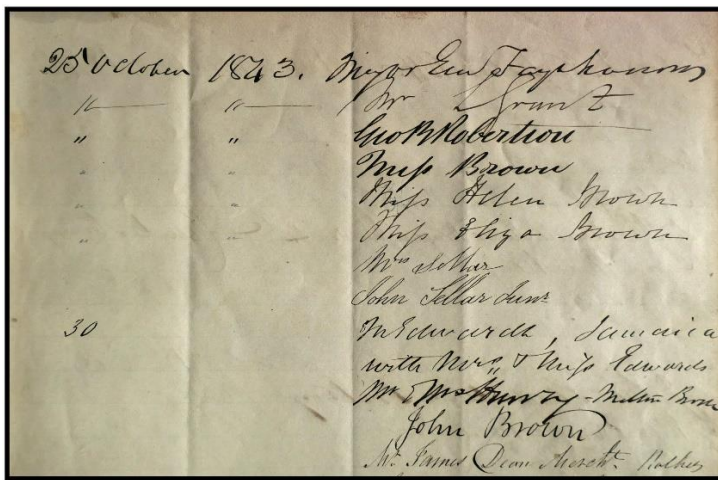 25 October 1843. Major Gen
" " Mr Grant
" " Geo R Robertson
" " Miss Brown
" " Miss Helen Brown
" " Miss Eliza Brown
Mrs Sellar
John Sellar Junr
30 Mr Edwards, Jamaica
with Mrs & Miss Edwards
Mr & Mrs Murray - Milton
John Brown
Mr James Dean Mercht. Rothes